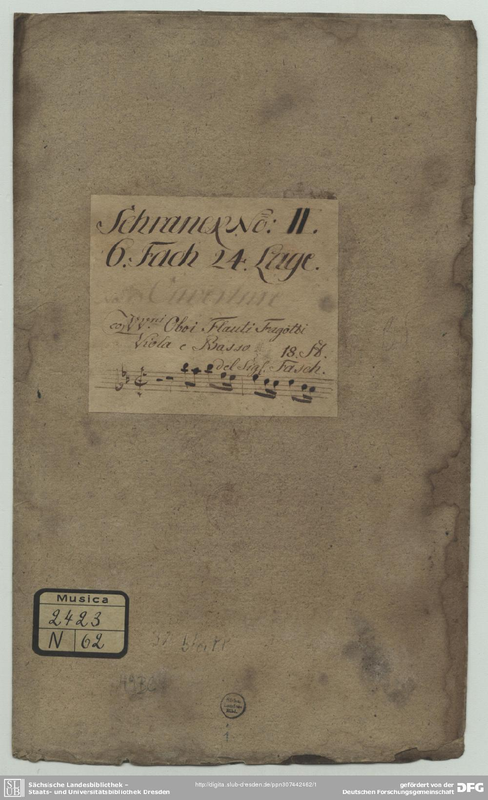 Schranck No: II.
6. Fach 24. Lage.
Ouverture
con VVni Oboi Flauti Fagotti
Viola e Basso 18. St.
del Sigl. Fasch.
Musica
2423
N 62
1
Sächsische Landesbibliothek -
Staats- und Universitätsbibliothek Dresden
http://digital.slub-dresden.de/ppn307442462/1
gefördert von der
Deutschen Forschungsgemeinschaft
DFG
SLUB